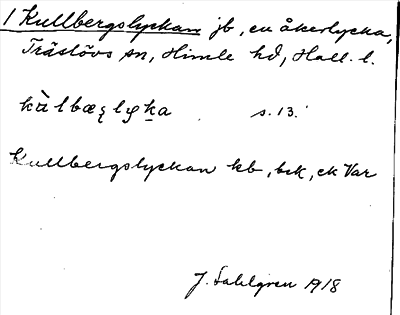 1 Kullbergslyckan jb, en åkerlycka,
Träslövs sn, Himle hd, Hall. l.
s. 13.
Kullbergslyckan kb, bek, ek Var
J. Sahlgren 1918